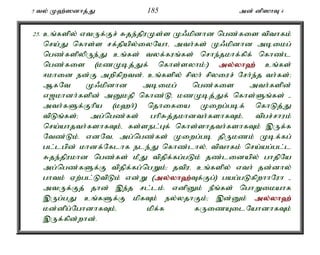 5 வல் முஹ்ஸனாத்து 185 அன் னிஸாவு 4
25. உங்களில் எவருக்குச் சுதந்திரமுள்ள முஃமினான பெண்களை விவாகம்
செய்து கொள்ள சக்தியில்லையோ, அவர்கள் முஃமினான அடிமைப்
பெண்களிலிருந்து உங்கள் வலக்கரங்கள் சொந்தமாக்கிக் கொண்ட
பெண்களை (மணமுடித்துக் கொள்ளலாம்;) அல்லாஹ் உங்கள்
ஈமானை நன்கு அறிகிறவன். உங்களில் சிலர் சிலரைச் சேர்ந்த வர்கள்;
ஆகவே முஃமினான அடிமைப் பெண்களை அவர்களின்
எஜமானர்களின் அனுமதி கொண்டு, மணமுடித்துக் கொள்ளுங்கள் -
அவர்களுக்குரிய (மஹர்) தொகையை முறைப்படிக் கொடுத்து
விடுங்கள்; அப்பெண்கள் பரிசுத்தமானவர்களாகவும், விபச்சாரம்
செய்யாதவர்களாகவும், கள்ளநட்புக் கொள்ளாதவர்களாகவும் இருக்க
வேண்டும். எனவே, அப்பெண்கள் முறைப்படி திருமணம் முடிக்கப்
பட்டபின் மானக்கேடாக நடந்து கொண்டால், விவாகம் செய்யப்பட்ட
சுதந்திரமான பெண்கள் மீது விதிக்கப்படும் தண்டனையில் பாதியே
அப்பெண்களுக்கு விதிக்கப்பெறும்; தவிர, உங்களில் எவர் தன்னால்
பாவம் ஏற்பட்டுவிடும் என்று (அல்லாஹ்வுக்குப்) பயப்படுகிறாரோ -
அவருக்குத் தான் இந்த சட்டம். எனினும் நீங்கள் பொறுமையாக
இருப்பது உங்களுக்கு மிகவும் நல்லதாகும்; இன்னும் அல்லாஹ்
மன்னிப்போனாகவும், மிக்க கருணையுடையோனாகவும்
இருக்கின்றான்.